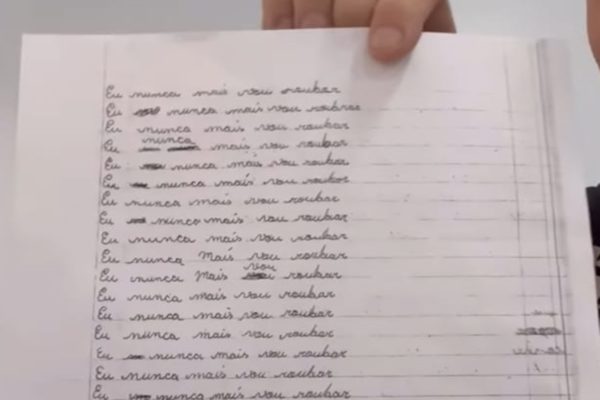 Eu nunca mais vou roubar
Eu nunca mais vou roubar
Eu nunca mais vou roubar
Eu nunca mais vou roubar
Eu nunca mais vou roubar
Eu nunca mais vou roubar
Eu nunca mais vou roubar
Eu nunca mais vou roubar
Eu nunca mais vou roubar
Eu nunca Mais vou roubar
Eu nunca Mais vou roubar
Eu nunca mais vou roubar
Eu nunca mais vou roubar
Eu nunca mais vou roubar
Eu nunca mais vou roubar
Eu nunca mais vou roubar
Eu nunca mais vou roubar